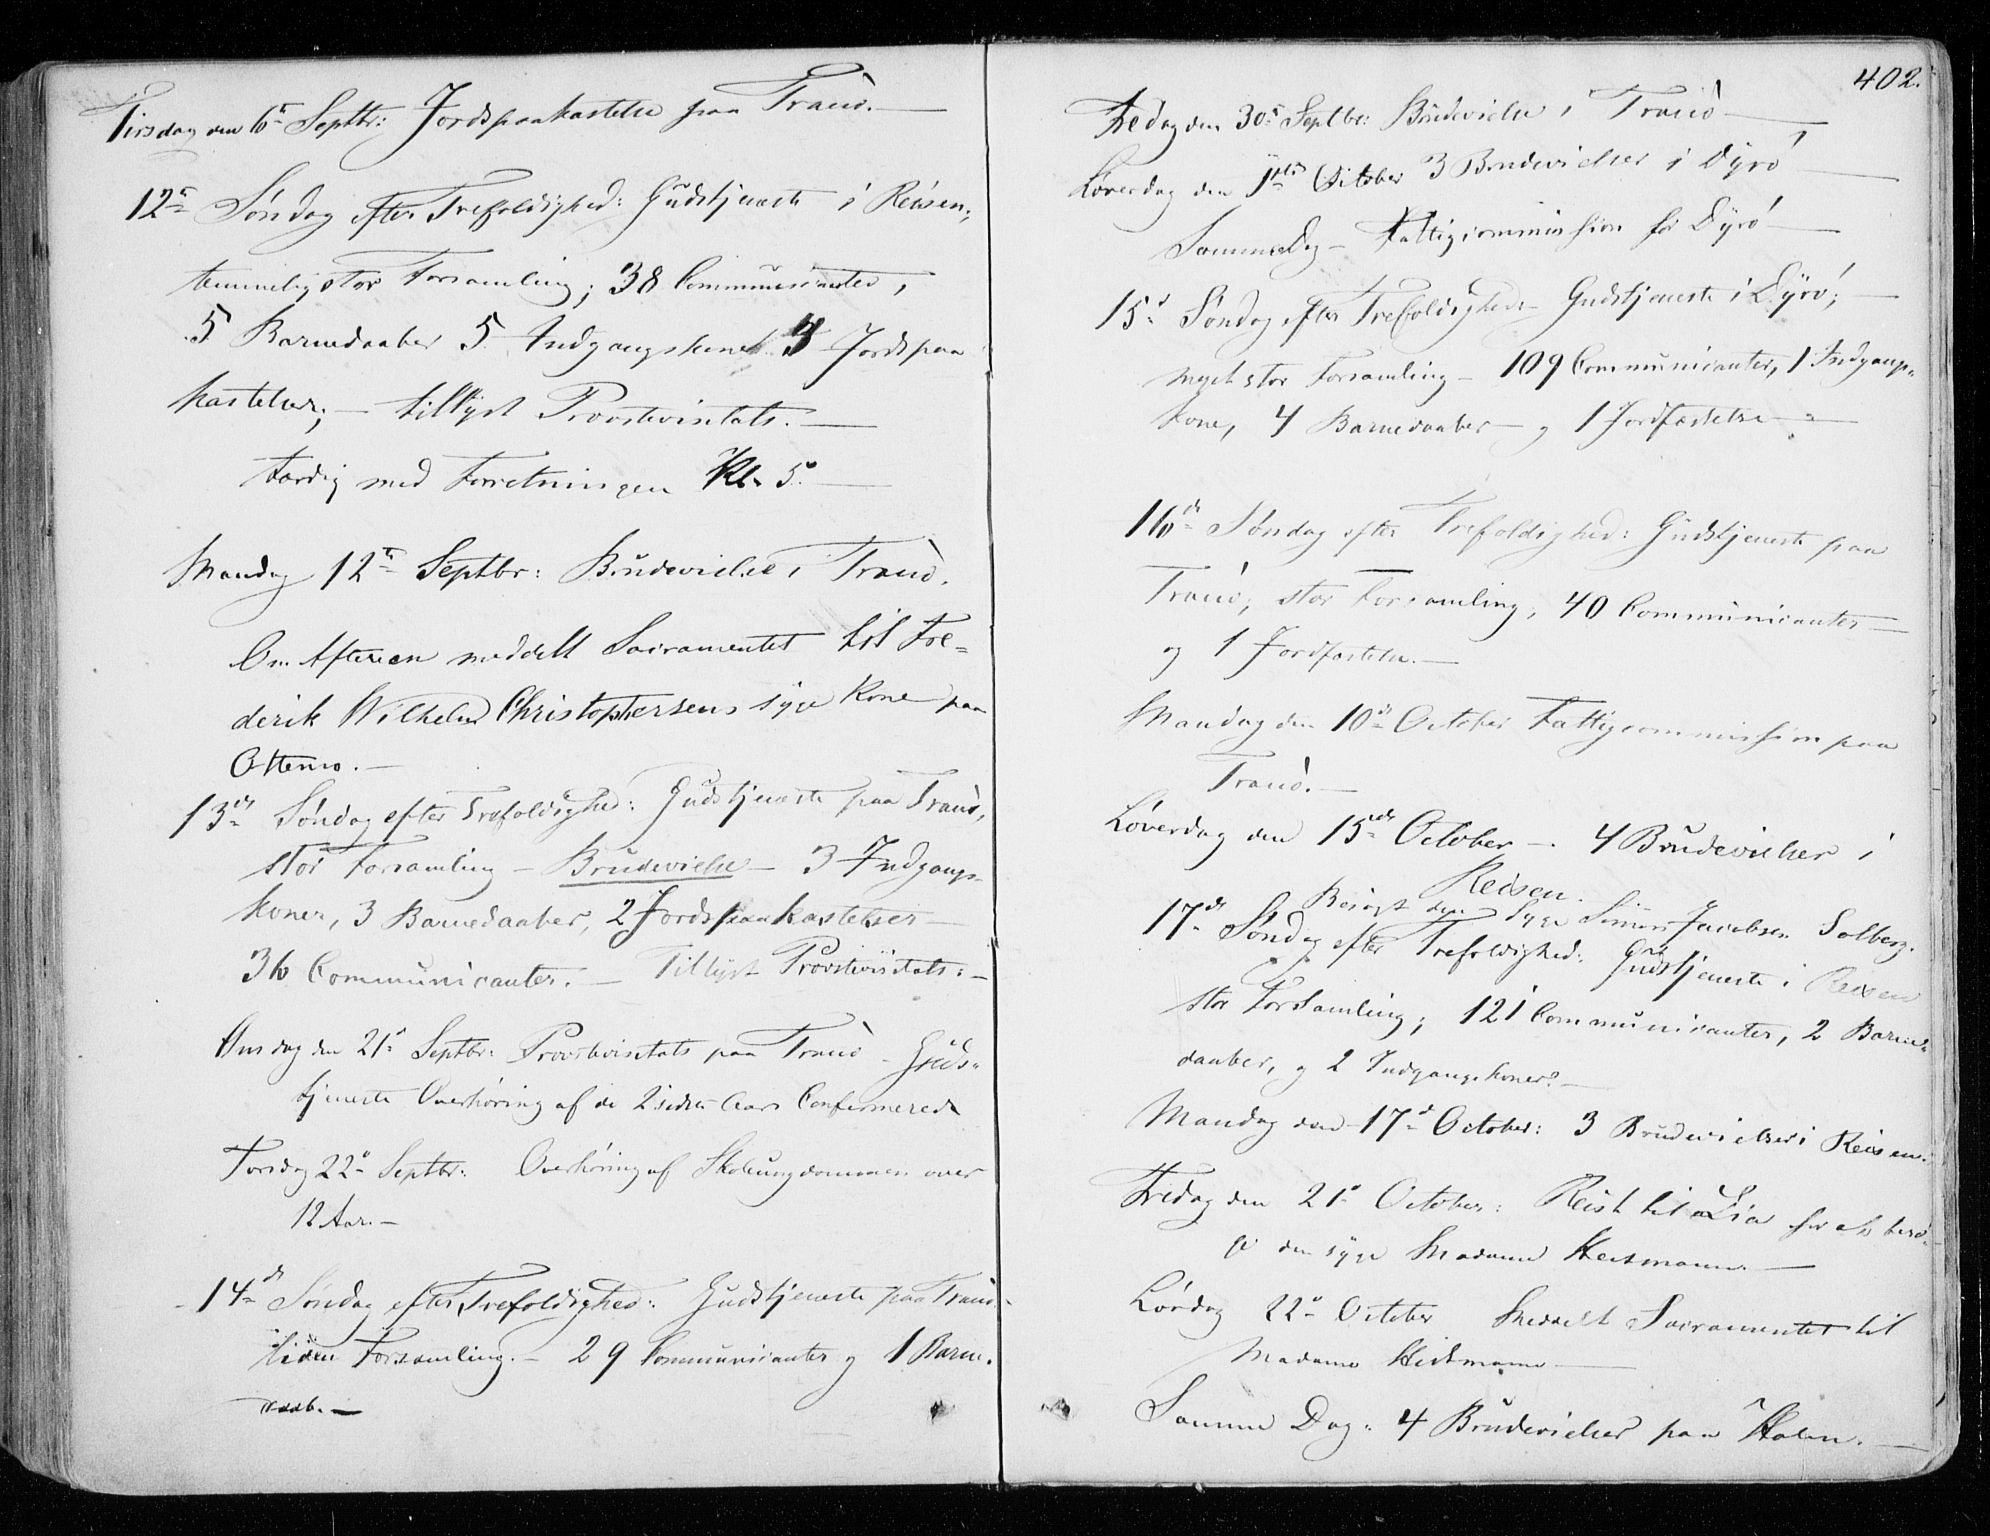 Tirsdag den 6te Septbr: Jordspaakastelse paa Tranö.—
12te Søndag efter Trefoldighed: Gudstjeneste i Reisen,
temmelig stor Forsamling; 38 Communicanter,
5 Barnedaaber 5 Indgangskoner 3 Jordspaa
kastelser; — tillyst Provstevisitats.—
færdig med Forretningen Kl. 5.—
Mandag 12te Septbr: Brudevielse i Tranö.
Om Aftenen meddelt Sacramentet til Fre=
derik Wilhelm Christophersens syge Kone paa
13de Søndag efter Trefoldighed: Gudstjeneste paa Tranö,
stor Forsamling — Brudevielse — 3 Indgangs-
koner, 3 Barnedaaber, 2 Jordspaakastelser
36 Communicanter. — Tillyst Provstevisitats: —
Onsdag den 21de Septbr: Provstevisitats paa Tranö — Guds=
tjeneste Overhøring af de 2 sidste Aars Confirmerede
Torsdag 22de Septbr: Overhøring af Skoleungdommen over
12 Aar.—
14de Søndag efter Trefoldighed: Gudstjeneste paa Tranö
liden Forsamling.— 29 Communicanter og 1 Barne-
daab.—
402.
Fredag den 30te Septbr: Brudevielse i Tranö
Løverdag den 1ste October 3 Brudevielser i Dyrö
Samme Dag — Fattigcommission for Dyrö
15de Søndag efter Trefoldighed — Gudstjeneste i Dyrö;
meget stor Forsamling — 109 Communicanter, 1 Indgangs-
kone, 4 Barnedaaber — og 1 Jordfæstelse —
16de Søndag efter Trefoldighed: Gudstjeneste paa
Tranö; stor Forsamling, 40 Communicanter
og 1 Jordfæstelse.—
Mandag den 10de October Fattigcommission paa
Tranö.—
Løverdag den 15de October —. 4 Brudevielser i
Reisen.
Besøgt den syge Simon Jacobsen Solberg.
17de Søndag efter Trefoldighed: Gudstjeneste i Reisen
stor Forsamling; 121 Communicanter, 2 Barne=
daaber, og 2 Indgangskoner.—
Mandag den 17de October: 3 Brudevielser i Reisen.
Fredag den 21de October: Reist til Lia for at besø-
ge den syge Madame Heitmann.—
Lørdag 22de October Meddelt Sacramentet til
Madame Heitmann —
Samme Dag: 4 Brudevielser paa Holm.—